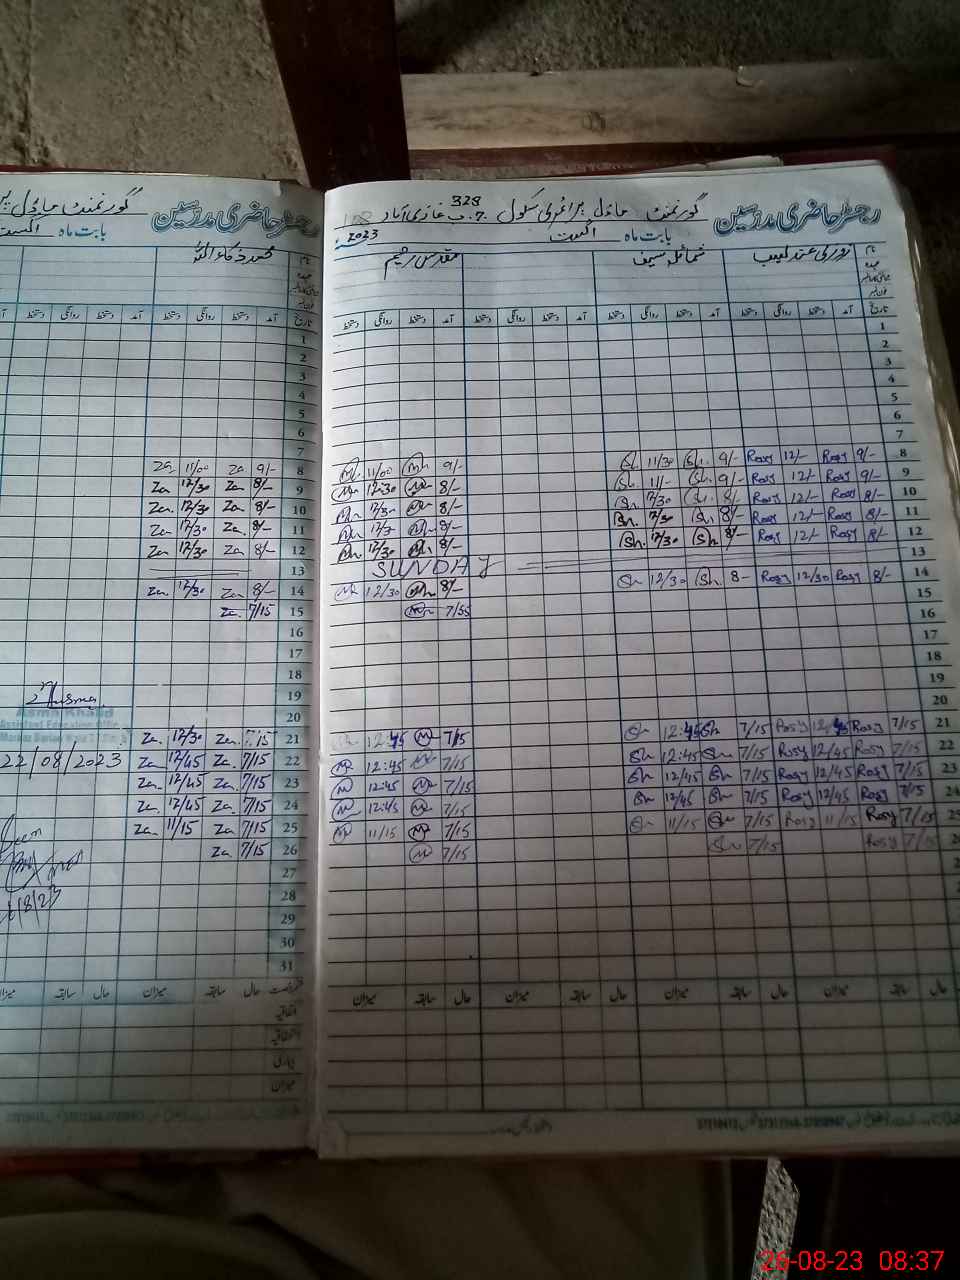 رجسٹر حاضری مدرسین گورنمنٹ ماڈل پرائمری سکول 328 ج۔ب غازی آباد
بابت ماہ اگست 2023ء
نام روزی عندلیب شمائلہ سیف مقدس رحیم
عہدہ
تاریخ آمد دستخط روانگی دستخط آمد دستخط روانگی دستخط آمد دستخط روانگی دستخط آمد دستخط روانگی دستخط
1
2
3
4
5
6
7
8 9/- Rosy 12/- Rosy 9/- Sh. 11/30 Sh 9/- M 11/00 M
9 9/- Rosy 12/- Rosy 9/- Sh. 11/- Sh. 8/- M 12:30 M
10 8/- Rosy 12/- Rosy 8/- Sh 12/30 Sh 8/- M 12/30 M
11 8/- Rosy 12/- Rosy 8/- Sh 12/30 Sh. 8/- M M
12 8/- Rosy 12/- Rosy 8/- Sh. 12/30 Sh. 8/- M 12/30 M
13 SUNDAY
14 8/- Rosy 12/30 Rosy 8- Sh. 12/30 Sh 8/- M 12/30 M
15 7/55 M
16
17
18
19
20
21 7/15 Rosy 12/45 Rosy 7/15 Sh 12:45 Sh 7/15 M 12:45
22 7/15 Rosy 12/45 Rosy 7/15 Sh 12:45 Sh 7/15 M 12:45 M
23 7/15 Rosy 12/45 Rosy 7/15 Sh 12/45 Sh 7/15 M 12:45 M
24 7/15 Rosy 12/45 Rosy 7/15 Sh 12/45 Sh 7/15 M 12:45 M
25 7/15 Rosy 11/15 Rosy 7/15 Sh 11/15 Sh 7/15 M 11/15 M
26 7/15 Rosy 7/15 Sh 7/15 M
حال سابقہ میزان حال سابقہ میزان حال سابقہ میزان حال سابقہ میزان
رجسٹر حاضری مدرسین گورنمنٹ ماڈل
بابت ماہ اگست
نام محمد ذکاء اللہ
عہدہ
تاریخ آمد دستخط روانگی دستخط
1
2
3
4
5
6
7
8 9/- Za 11/00 Za
9 8/- Za 12/30 Za
10 8/- Za 12/30 Za.
11 8/- Za. 12/30 Za
12 8/- Za 12/30 Za
13
14 8/- Za 12/30 Za.
15 7/15 Za.
16
17
18
19
20
Asma Khalid
Assistant Education Officer
21 7/15 Za. 12/30 Za.
22 7/15 Za. 12/45 Za 22/08/2023
23 7/15 Za. 12/45 Za
24 7/15 Za. 12/45 Za
25 7/15 Za 11/15 Za
26 7/15 Za.
27
28
29
30
31
حال سابقہ میزان حال سابقہ میزان
اتفاقیہ
استحقاقیہ
بیماری
میزان
26-08-23 08:37